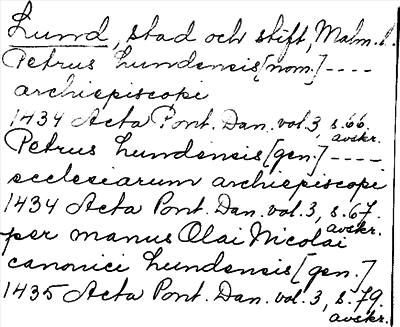 Lund, stad och stift, Malm. l.
Petrus Lundensis [nom.] ----
archiepiscopi
1434 Acta Pont. Dan. vol. 3, s. 66.
avskr.
Petrus Lundensis [gen.] ----
ecclesiarum archiepiscopi
1434 Acta Pont. Dan. vol. 3, s. 67.
avskr.
per manus Olai Nicolai
canonici Lundensis [gen.]
1435 Acta Pont. Dan. vol. 3, s. 79.
avskr.